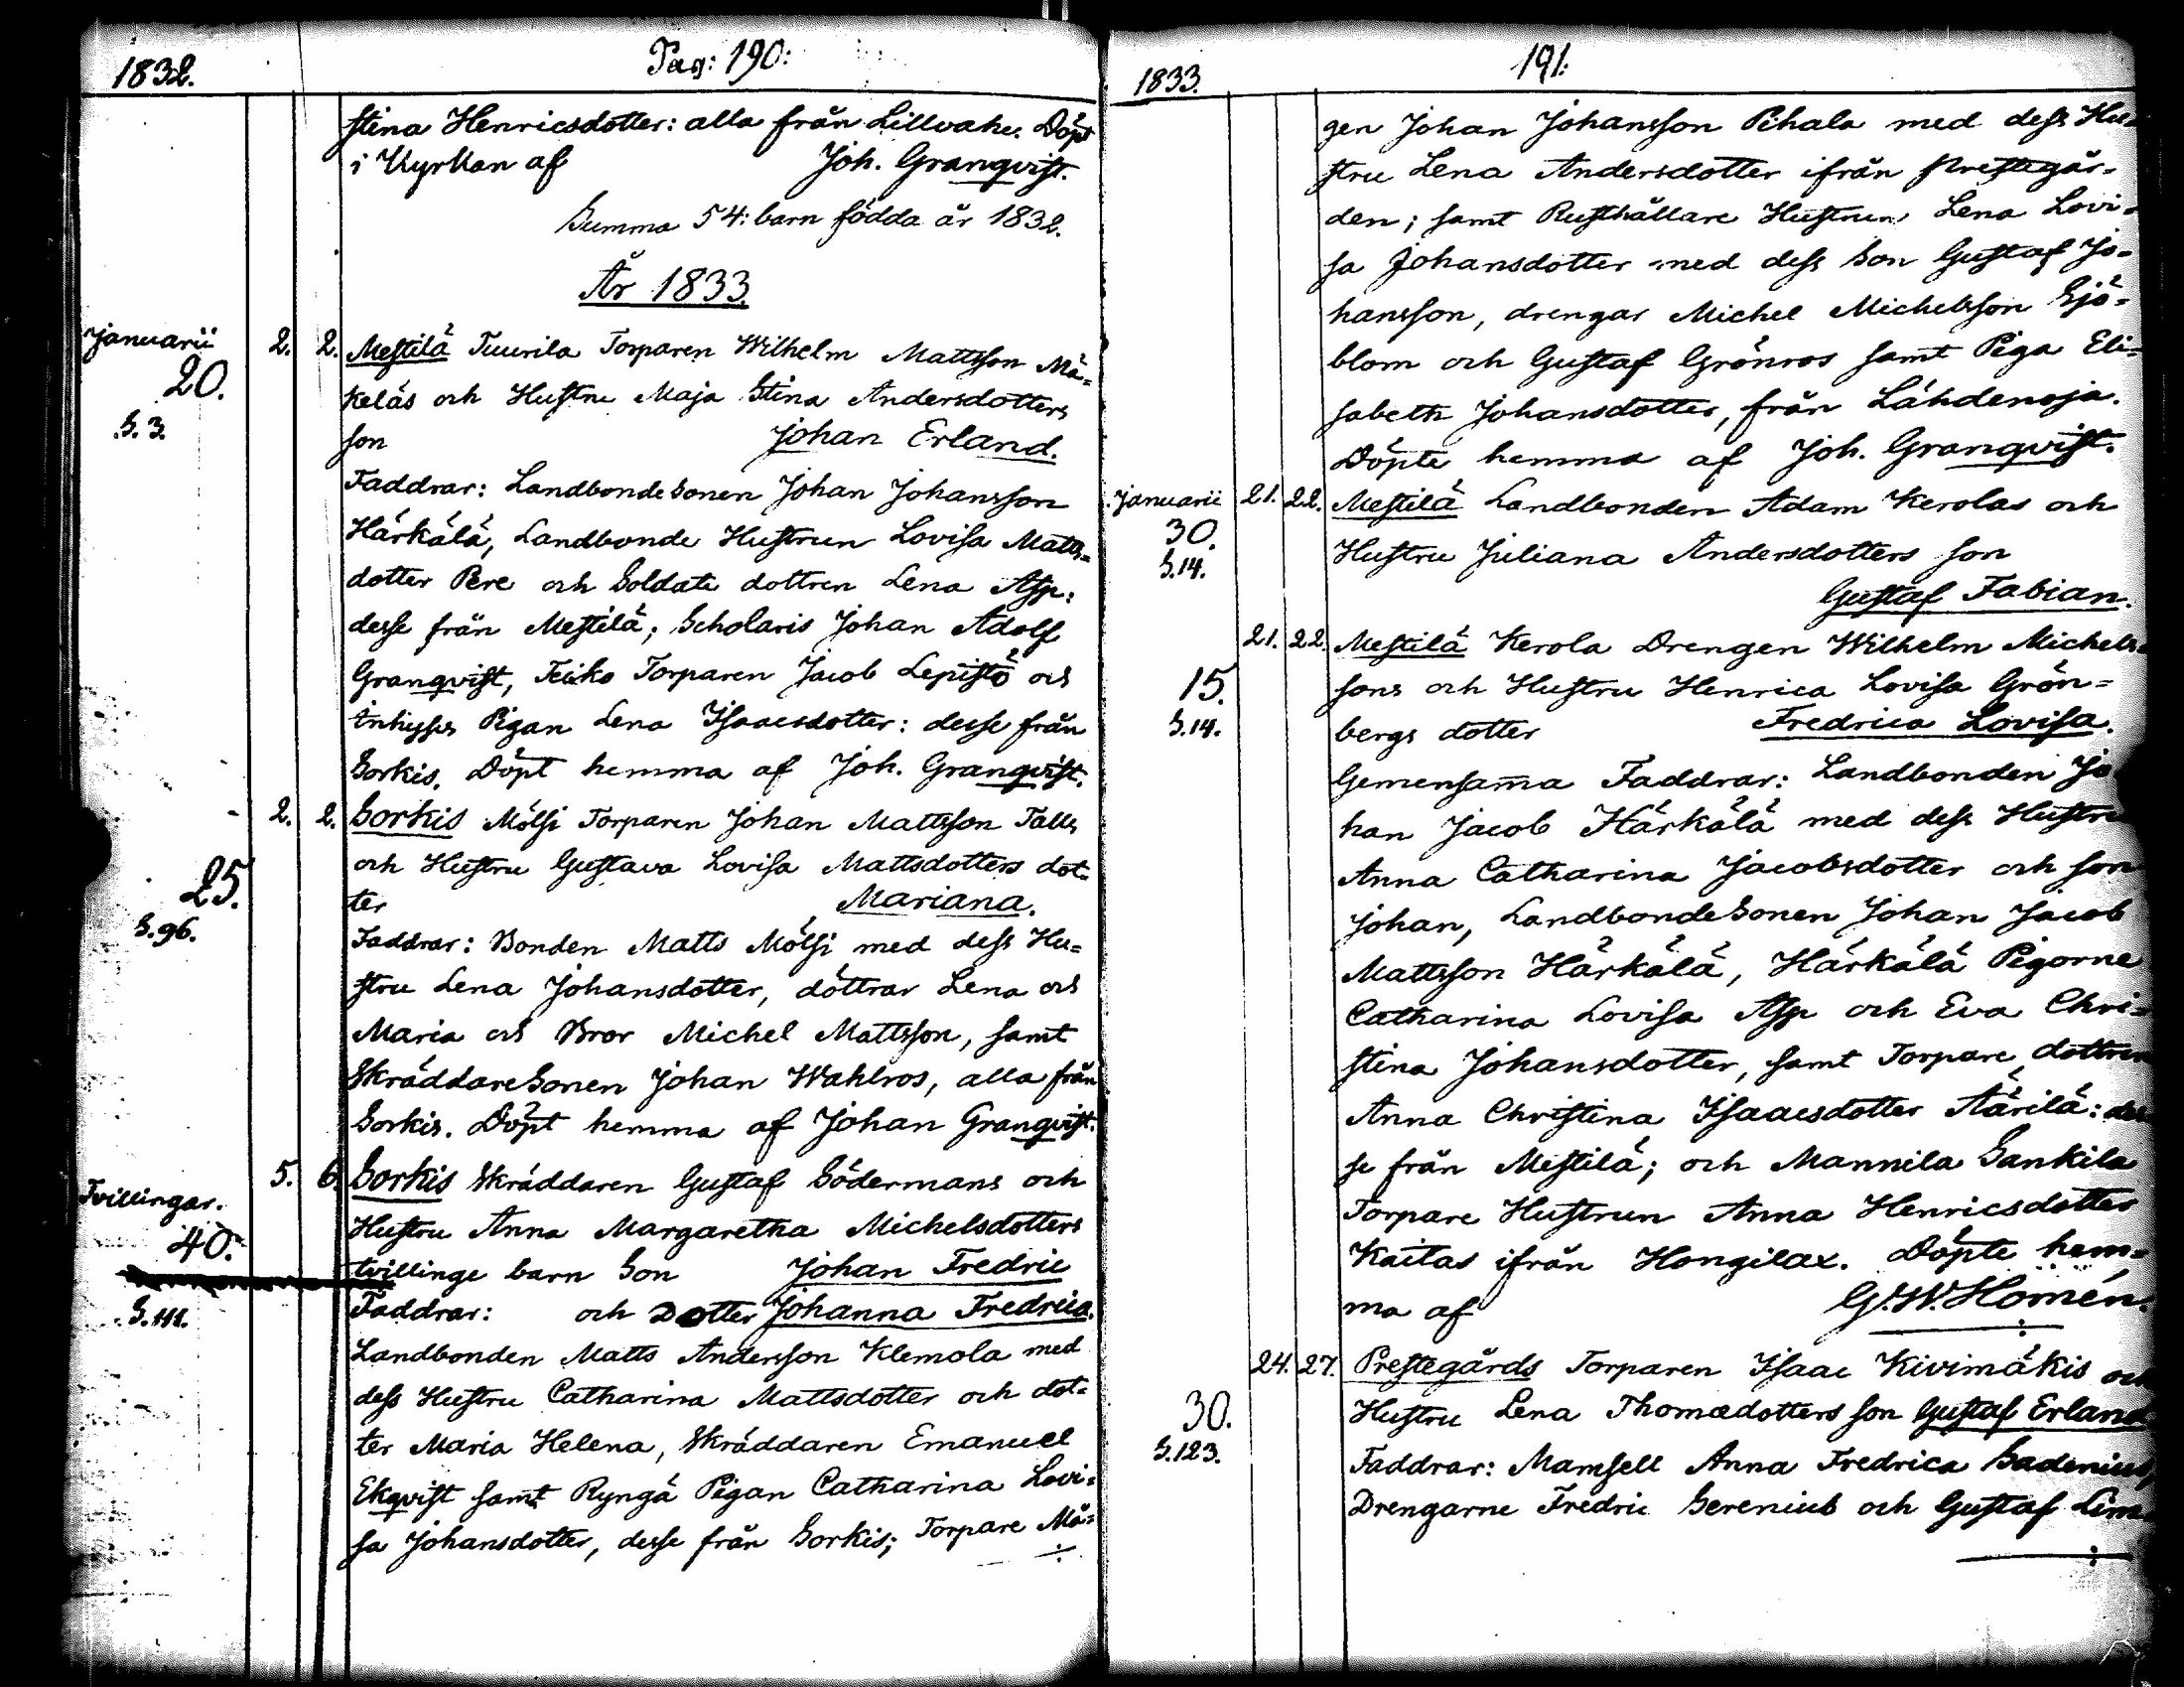 1832.
Pag: 190:
stina Henricsdotter: alla från Lillvahe. Döpt
i Kyrkan af Joh. Granqvist.
Summa 54: barn födda år 1832.
År 1833
Januarii 2. 2. Mestilä Tuurila Torparen Wilhelm Mattsson Mä=
20. keläs och Hustru Maja Stina Andersdotters
S. 3. son Johan Erland.
Faddrar: Landbonde Sonen Johan Johansson
Härkälä, Landbonde Hustrun Lovisa Matts=
dotter Pere och Soldate dottren Lena Asp:
desse från Mestilä; Scholaris Johan Adolf
Granqvist, Teiko Torparen Jacob Lepistö och
Inhyses Pigan Lena Isaacsdotter: desse från
Sorkis. Döpt hemma af Joh. Granqvist.
2. 2. Sorkis Mölsi Torparen Johan Mattsson Talls
25. och Hustru Gustava Lovisa Mattsdotters dot=
ter Mariana.
S. 96.
Faddrar: Bonden Matts Mölsi med dess Hu=
stru Lena Johansdotter, döttrar Lena och
Maria och Bror Michel Mattsson, samt
Skräddare Sonen Johan Wahlros, alla från
Sorkis. Döpt hemma af Johan Granqvist.
5. 6. Sorkis Skräddaren Gustaf Södermans och
Tvillingar.
40. Hustru Anna Margaretha Michelsdotters
tvillinge barn Son Johan Fredric
S. 111. Faddrar: och Dotter Johanna Fredrica.
Landbonden Matts Andersson Klemola med
dess Hustru Catharina Mattsdotter och dot=
ter Maria Helena, Skräddaren Emanuel
Ekqvist samt Ryngä Pigan Catharina Lovi=
sa Johansdotter, desse från Sorkis; Torpare Må=
÷
1833.
191:
gen Johan Johansson Pihala med dess Hu=
stru Lena Andersdotter ifrån Prestegår=
den; samt Rusthållare Hustrun Lena Lovi=
sa Johansdotter med dess Son Gustaf Jo=
hansson, drengar Michel Michelsson Sjö=
blom och Gustaf Grönros samt Piga Eli=
sabeth Johansdotter, från Lähdenoja.
Döpte hemma af Joh. Granqvist.
Januarii 21. 22. Mestilä Landbonden Adam Kerolas och
30. Hustru Juliana Andersdotters son
S. 14. Gustaf Fabian.
21. 22. Mestilä Kerola Drengen Wilhelm Michels=
15. sons och Hustru Henrica Lovisa Grön=
S. 14. bergs dotter Fredrica Lovisa.
Gemensama Faddrar: Landbonden Jo
han Jacob Härkälä med dess Hustru
Anna Catharina Jacobsdotter och son
Johan, Landbonde Sonen Johan Jacob
Mattsson Härkälä, Härkälä Pigorne
Catharina Lovisa Asp och Eva Chri=
stina Johansdotter, samt Torpare dottren
Anna Christina Isaacsdotter Äärilä: des
se från Mestilä; och Mannila Sankila
Torpare Hustrun Anna Henricsdotter
Kaitas ifrån Hongilax. Döpte hem=
ma af G. W. Homén.
÷
24. 27. Prestegårds Torparen Isaac Kivimäkis och
30. Hustru Lena Thomædotters son Gustaf Erland
S. 123. Faddrar: Mamsell Anna Fredrica Sadenius,
Drengarne Fredric Serenius och Gustaf Lim
÷